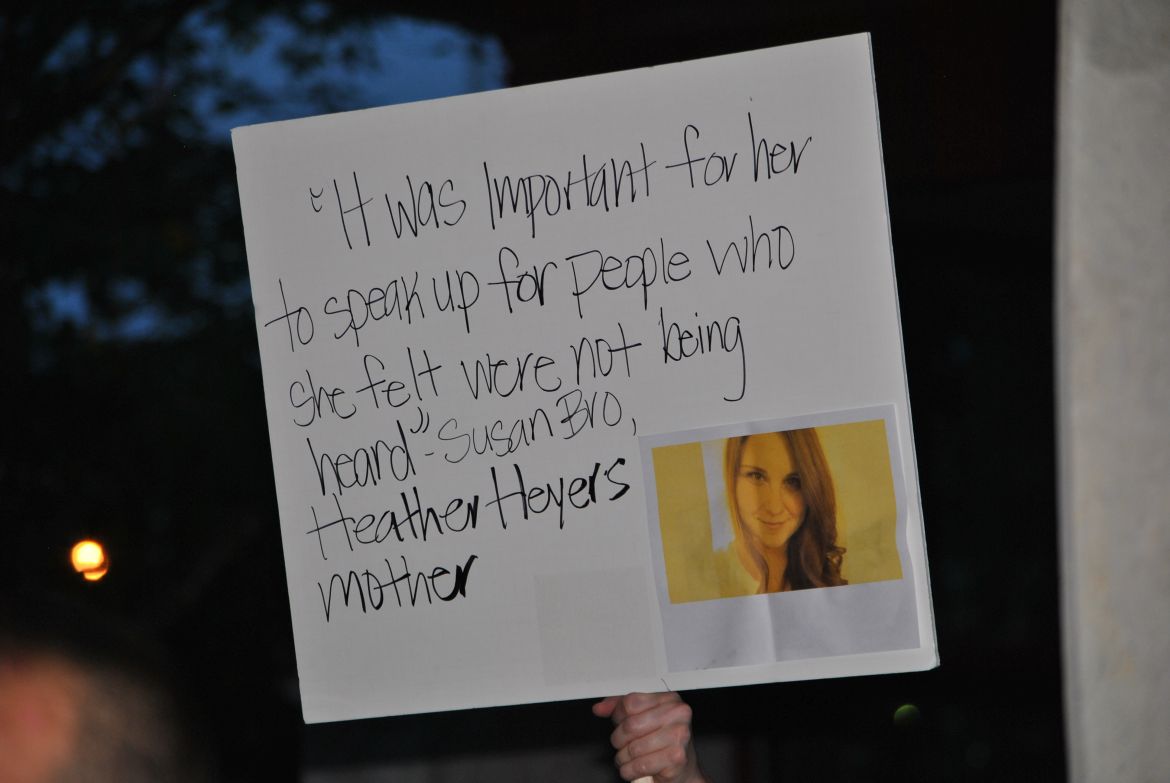 "It was Important for her
to speak up for people who
she felt were not being
heard"-Susan Bro,
Heather Heyers
mother